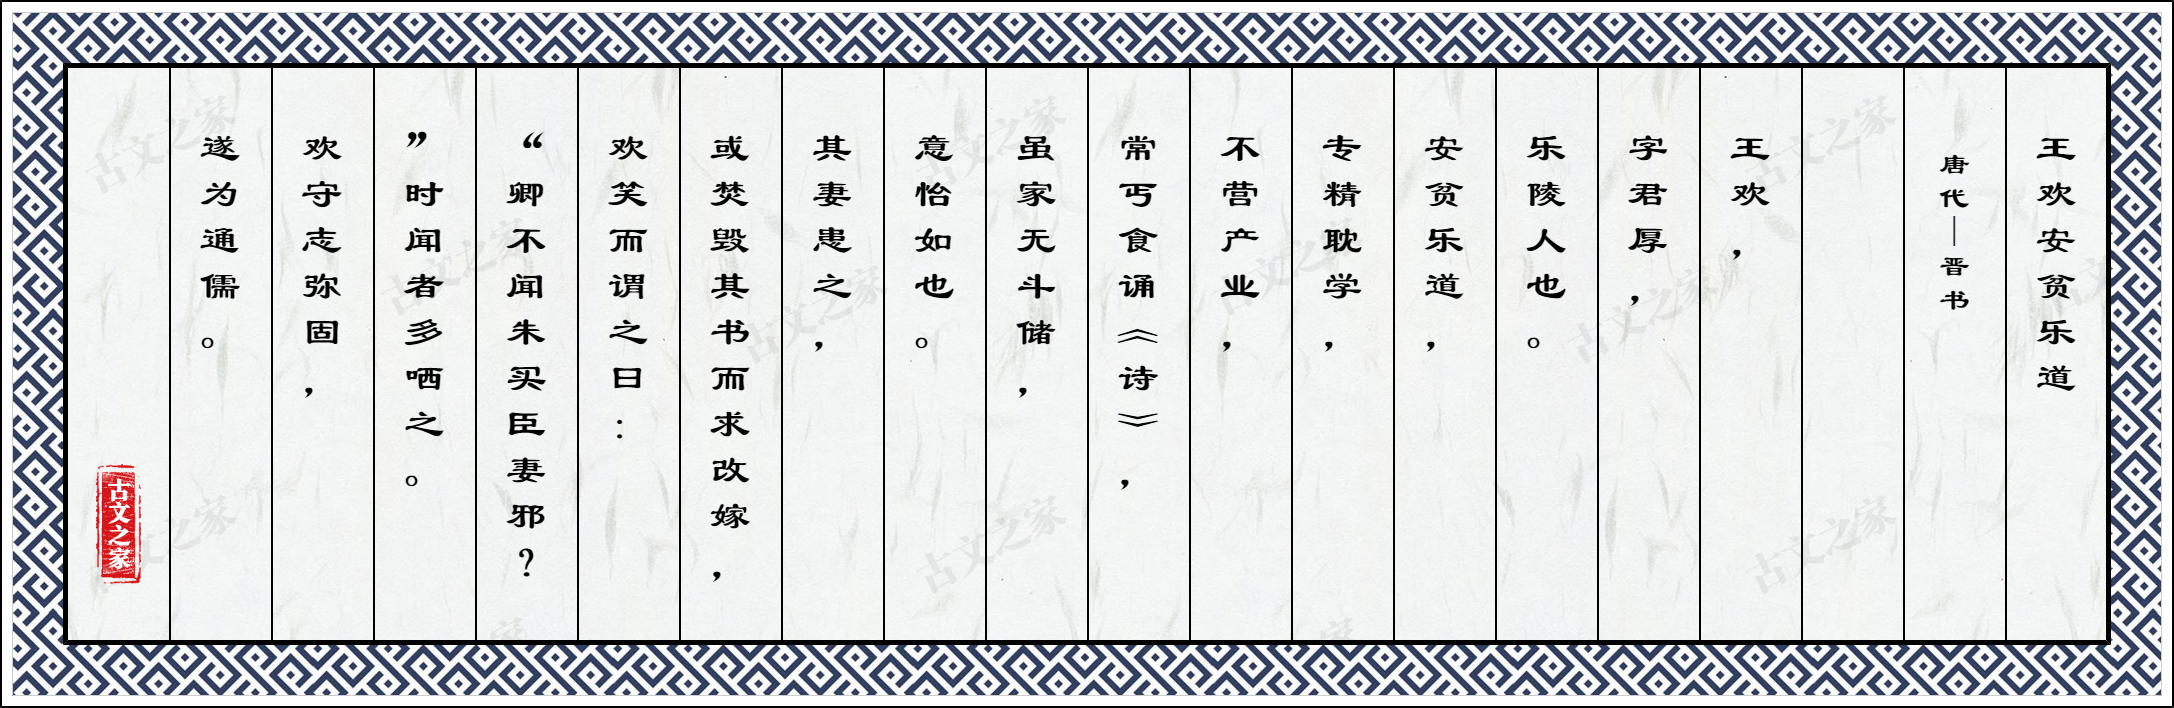 王欢安贫乐道
唐代—晋书
王欢，
字君厚，
乐陵人也。
安贫乐道，
专精耽学，
不营产业，
常丐食诵《诗》，
虽家无斗储，
意怡如也。
其妻患之，
或焚毁其书而求改嫁，
欢笑而谓之曰：
“卿不闻朱买臣妻邪？
”时闻者多哂之。
欢守志弥固，
遂为通儒。
古文之家